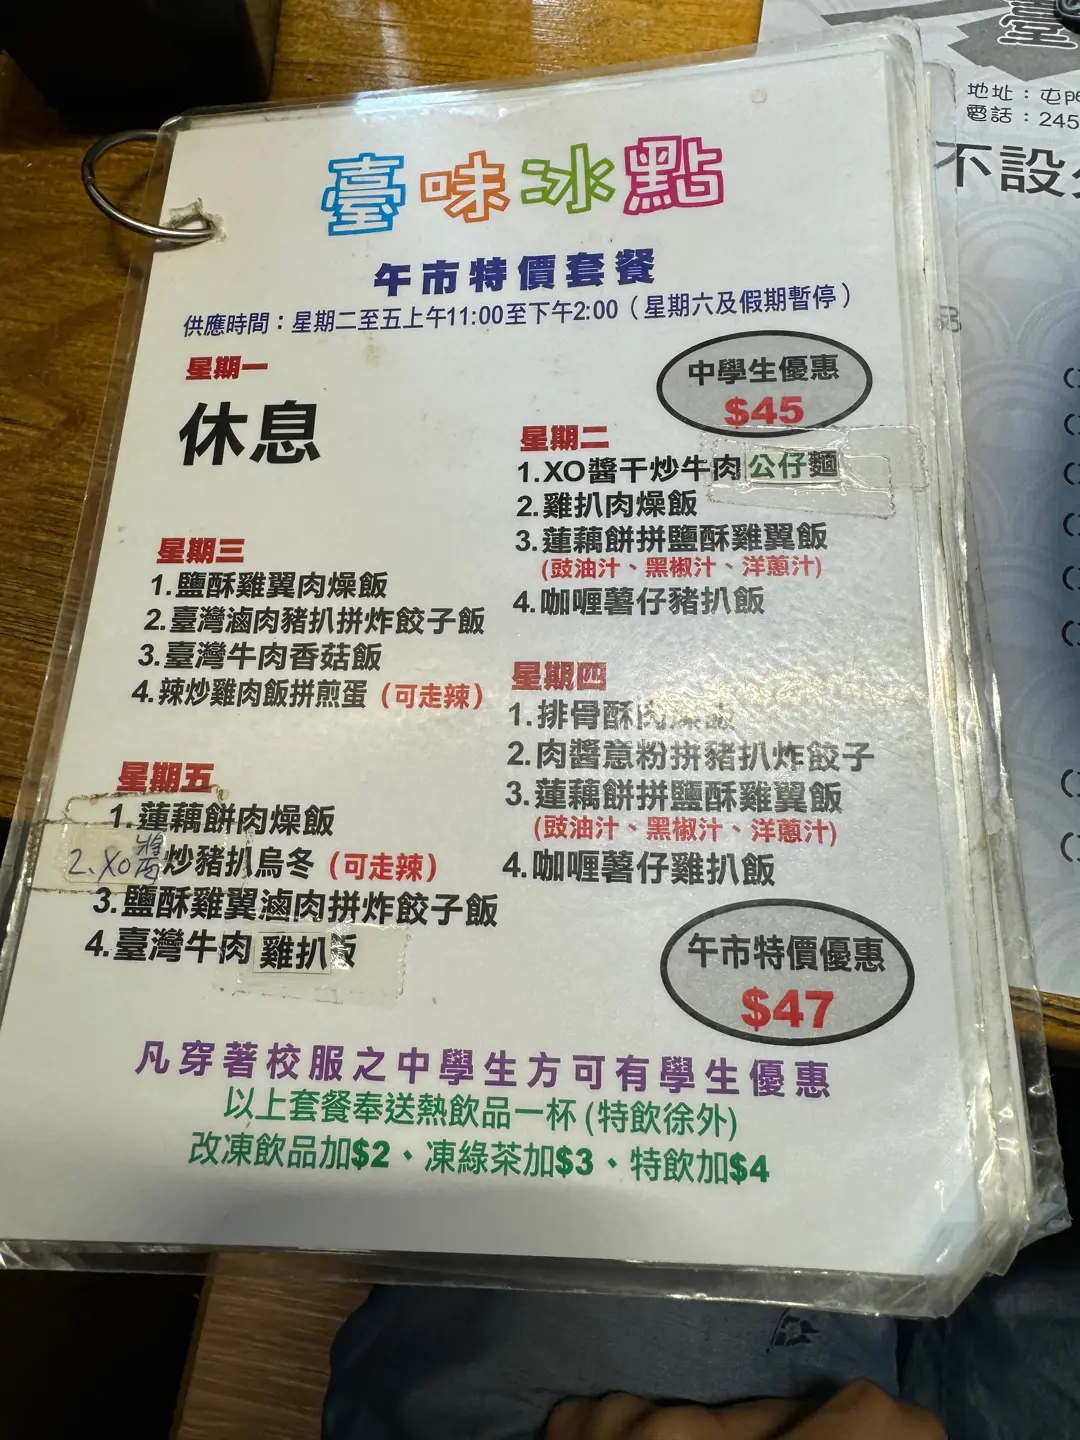 臺味冰點
午市特價套餐
供應時間：星期二至五上午11:00至下午2:00（星期六及假期暫停）
星期一
休息
中學生優惠
$45
星期二
1.XO醬干炒牛肉公仔麵
2.雞扒肉燥飯
3.蓮藕餅拼鹽酥雞翼飯
(豉油汁、黑椒汁、洋蔥汁)
4.咖喱薯仔豬扒飯
星期三
1.鹽酥雞翼肉燥飯
2.臺灣滷肉豬扒拼炸餃子飯
3.臺灣牛肉香菇飯
4.辣炒雞肉飯拼煎蛋（可走辣）
星期四
1.排骨酥肉燥飯
2.肉醬意粉拼豬扒炸餃子
3.蓮藕餅拼鹽酥雞翼飯
(豉油汁、黑椒汁、洋蔥汁)
4.咖喱薯仔雞扒飯
星期五
1.蓮藕餅肉燥飯
2.XO醬炒豬扒烏冬（可走辣）
3.鹽酥雞翼滷肉拼炸餃子飯
4.臺灣牛肉雞扒飯
午市特價優惠
$47
凡穿著校服之中學生方可有學生優惠
以上套餐奉送熱飲品一杯(特飲徐外)
改凍飲品加$2、凍綠茶加$3、特飲加$4
臺
地址：屯門
電話：245
不設